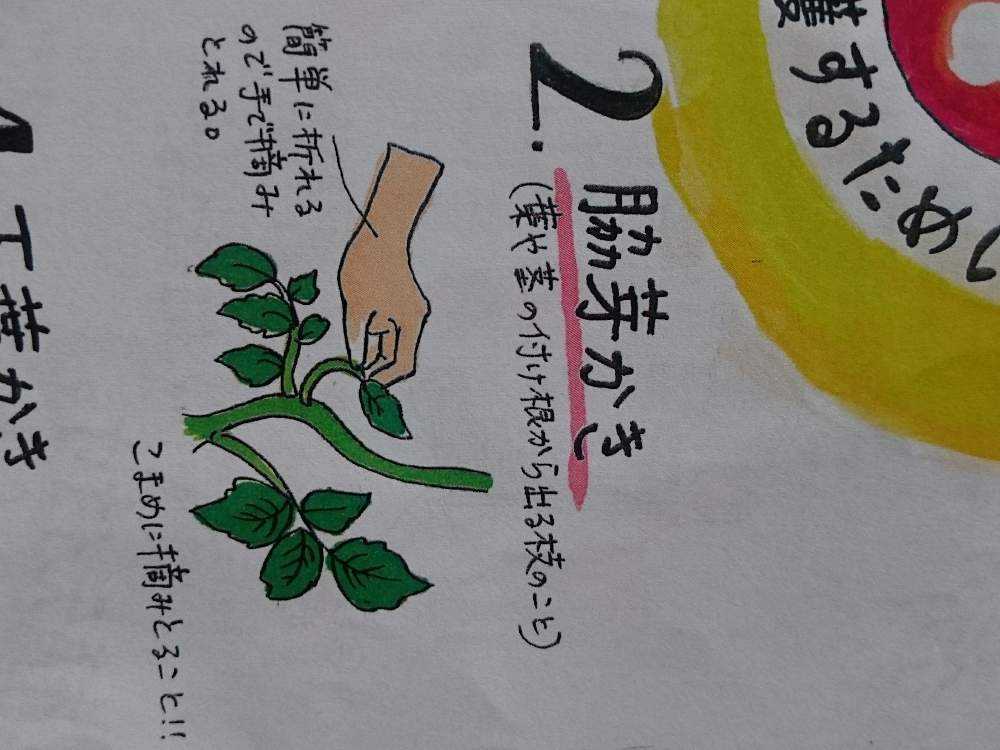 護するため
2. 脇芽かき
(葉や茎の付け根から出る枝のこと)
簡単に折れる
ので手で摘み
とれる。
こまめに摘みとること!!
下葉かき